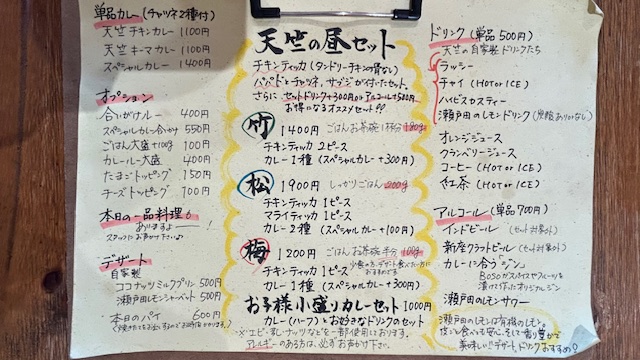 単品カレー (チャツネ2種付)
天竺チキンカレー 1100円
天竺キーマカレー 1100円
スペシャルカレー 1400円
オプション
合いがけルー 400円
スペシャルカレー合がけ 550円
ごはん大盛+100g 100円
カレールー大盛 400円
たまごトッピング 150円
チーズトッピング 700円
本日の一品料理
ありますよー
スタッフにお声がけ下さい♪
デザート
自家製
ココナッツミルクプリン 500円
瀬戸田レモンシャーベット 500円
本日のパイ 600円
天竺の昼セット
チキンティッカ (タンドリーチキンの骨なし)
パパドとチャツネ、サブジが付いたセット
さらに、セットドリンク+300円orアルコール+500円
お得になるオススメセット!!
竹 1400円 ごはんお茶碗1杯分 180g
チキンティッカ 2ピース
カレー1種 (スペシャルカレー+300円)
松 1900円 しっかりごはん 200g
チキンティッカ 1ピース
マライティッカ 1ピース
カレー2種 (スペシャルカレー+100円)
梅 1200円 ごはんお茶碗半分 100g
チキンティッカ 1ピース
カレー1種 (スペシャルカレー+300円)
お子様小盛りカレーセット 1000円
カレー(ハーフ)とお好きなドリンクのセット
※エビ・乳・ナッツなどを一部使用しております。
アレルギーのある方は、必ずお声がけ下さい。
ドリンク (単品500円)
天竺の自家製ドリンクたち
ラッシー
チャイ (HOT or ICE)
ハイビスカスティー
瀬戸田のレモンドリンク (炭酸ありorなし)
オレンジジュース
クランベリージュース
コーヒー (HOT or ICE)
紅茶 (HOT or ICE)
アルコール (単品700円)
インドビール (セット対象外)
新座クラフトビール (セット対象外)
カレーに合う「ジン」
漬けこんだオリジナルジン
瀬戸田のレモンサワー
瀬戸田のレモンは有機のレモン。
美味しい!!デザート、ドリンクおすすめ!